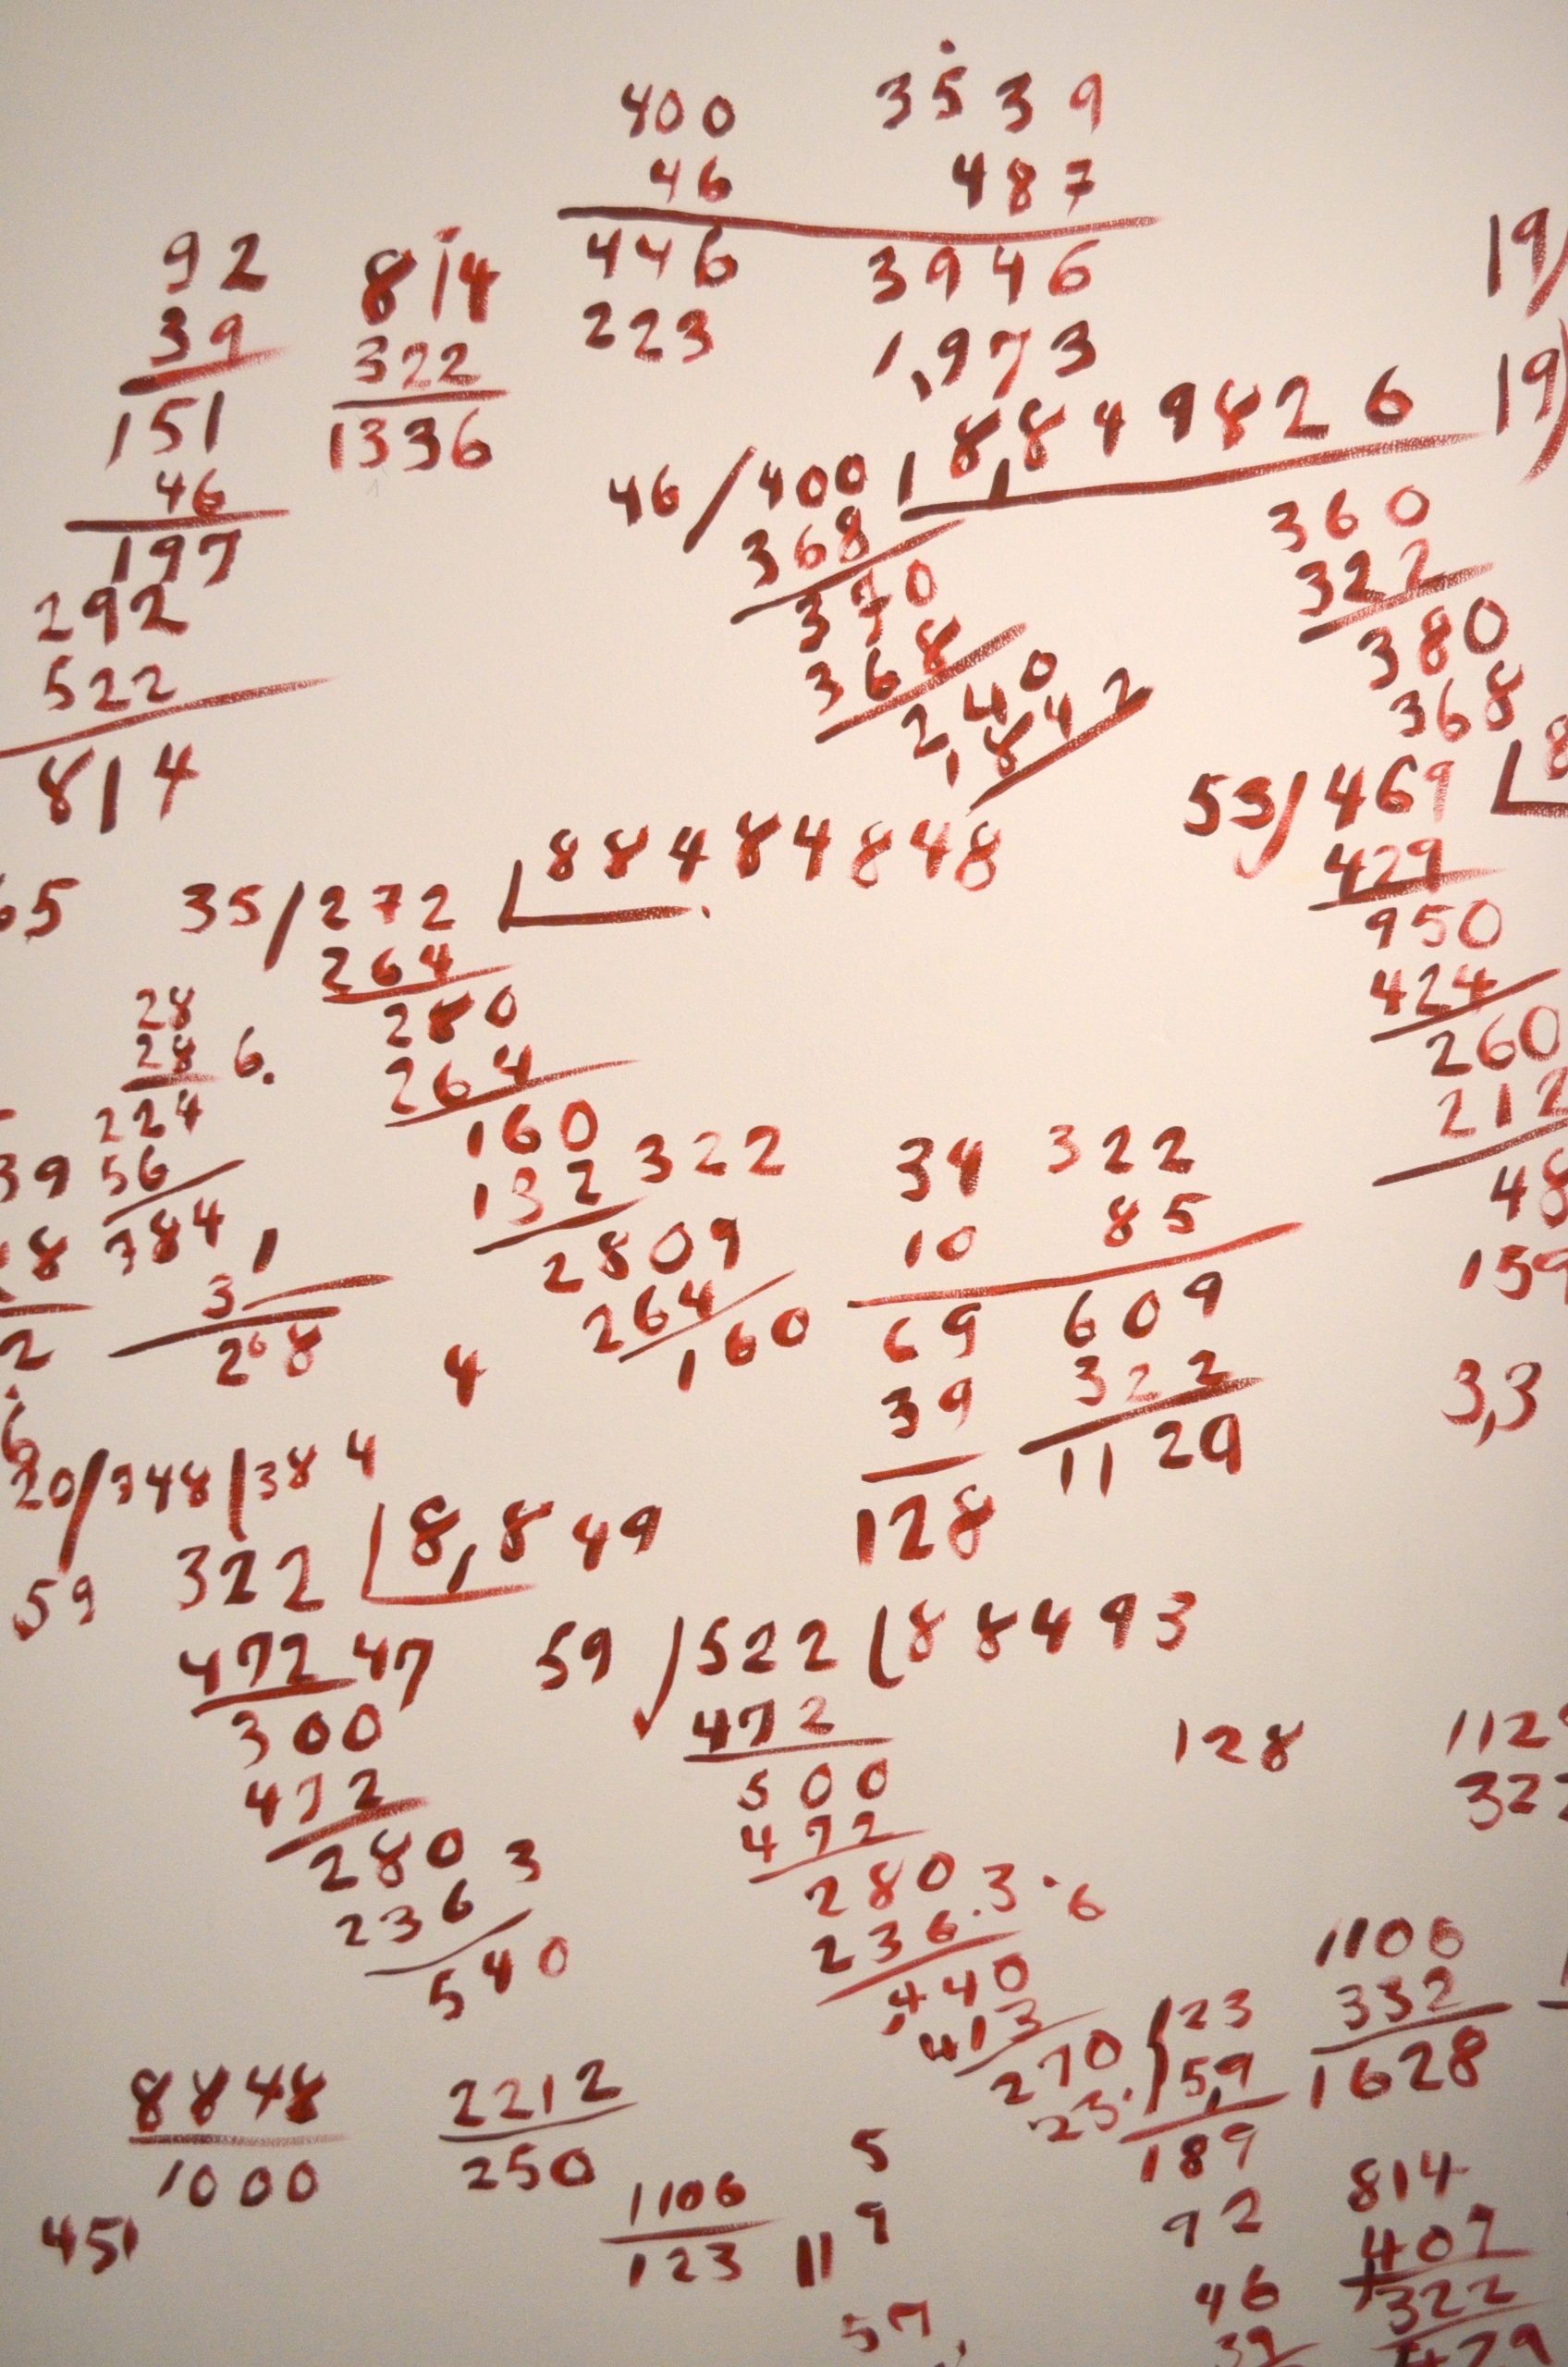 400 3539
46 487
446 3946
223 1,973
92
39
151
46
197
292
522
814
814
322
1336
19/
19)
46/400 1 8,849826
368
370
368
240
1842
360
322
380
368
53/469
429
950
424
260
212
48
159
3,3
65
35/272 884 84848
264
280
264
160
132 322
2809
264
160
28
28 6.
224
56
784
1
3
268
39
18
2
4
34 322
10 85
69 609
39 322
128 1129
6
20/348/38 4
59 322 8,849
472 47
300
472
280 3
236
540
59/522(88493
472
500
472
280 3.6
236
440
413
270
23.
23
59
189
128
112
322
1106
332
1628
8848
1000
2212
250
1106
123
451
11
5
9
57,
92
46
39
814
407
322
479